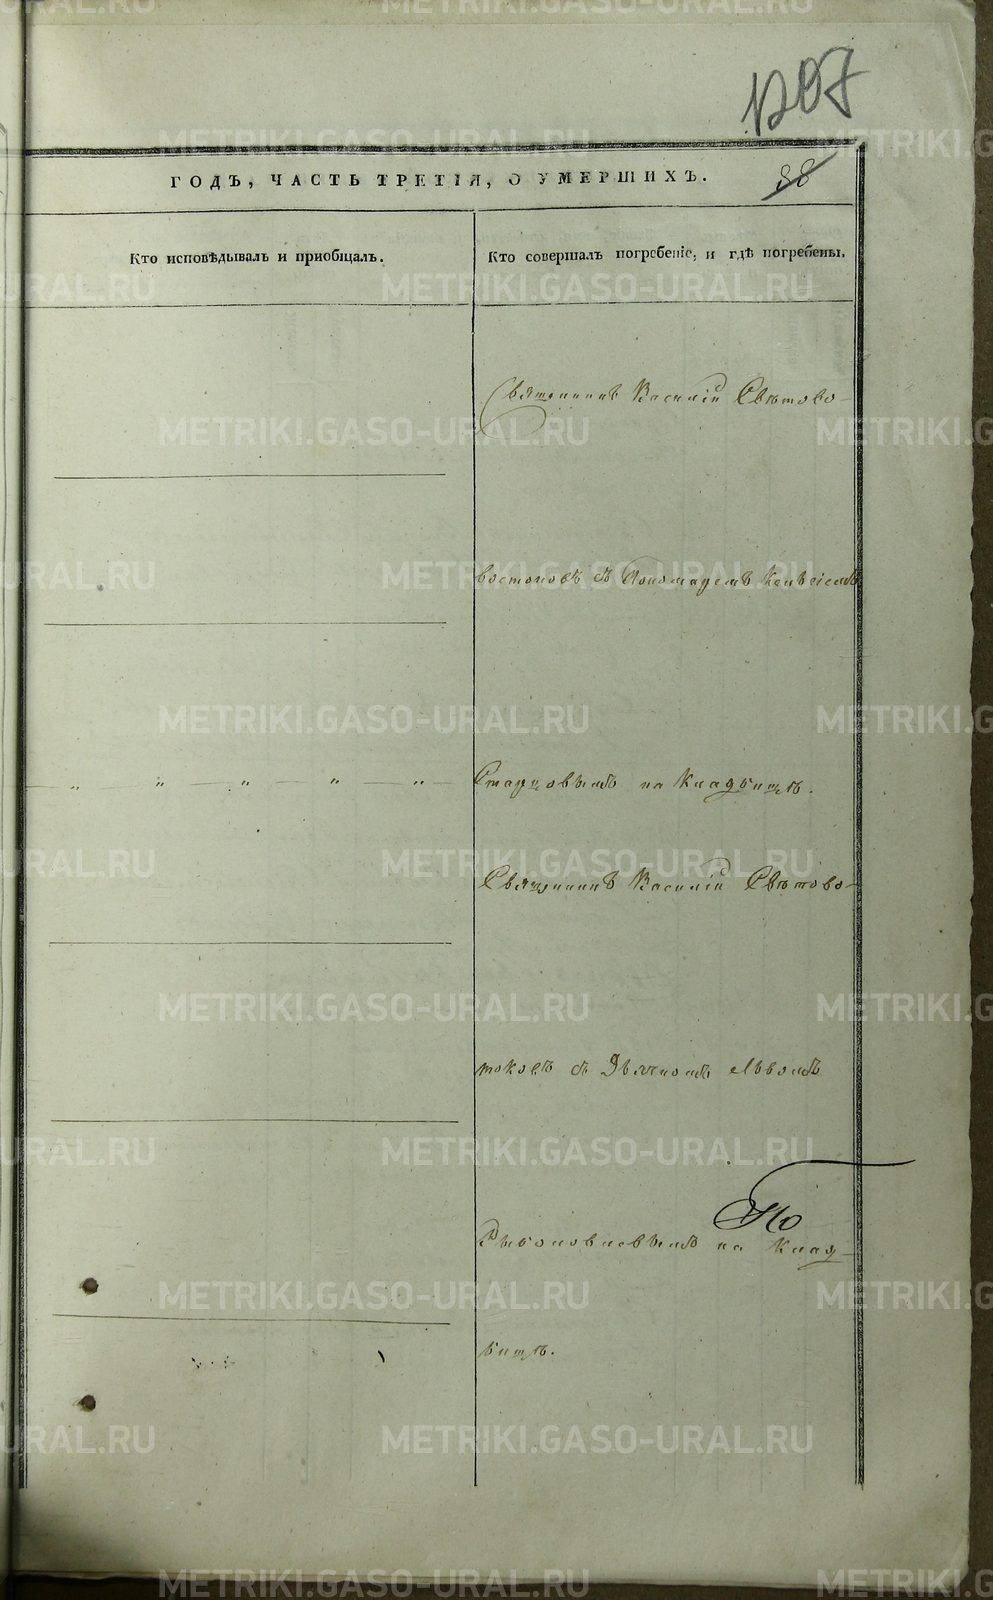 1207
ГОДЪ, ЧАСТЬ ТРЕТІЯ, О УМЕРШИХЪ. 38
Кто исповѣдывалъ и пріобщалъ.
Кто совершалъ погребеніе, и гдѣ погребены.
Священникъ Василій Свѣтово-
востоковъ съ Пономаремъ Алексіемъ
Старцовымъ на кладбищѣ.
Священникъ Василій Свѣтово-
токовъ съ Дьячкомъ Львомъ
По
Рыболовлевымъ на клад-
бищѣ.
METRIKI.GASO-URAL.RU